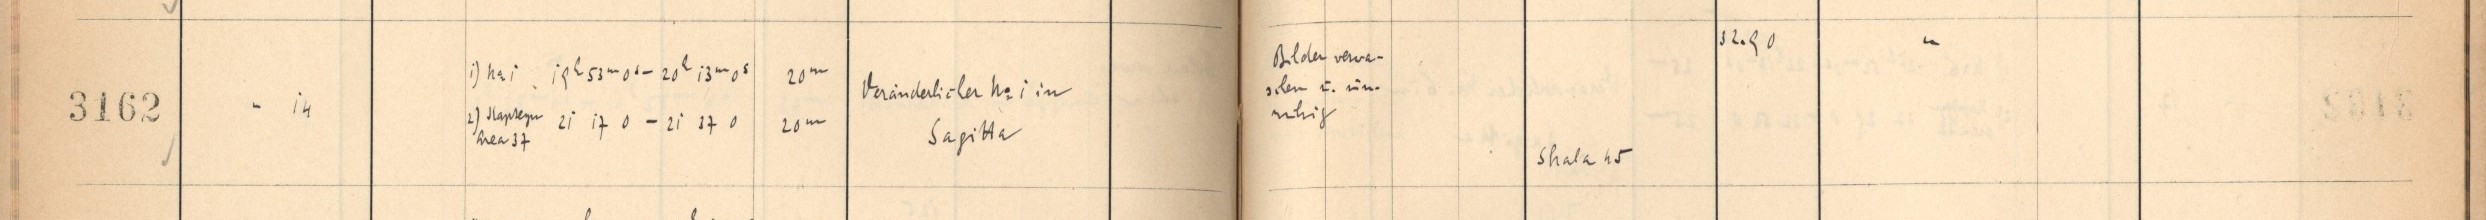 3162 " 14
1) Nr. 1 19h 53m 0s – 20h 13m 0s 20m
2) Kapteyn 21 17 0 – 21 37 0 20m
Area 37
Veränderlicher Nr. 1 in
Sagitta
Bilder verwa-
schen u. un-
ruhig
Skala 45
"